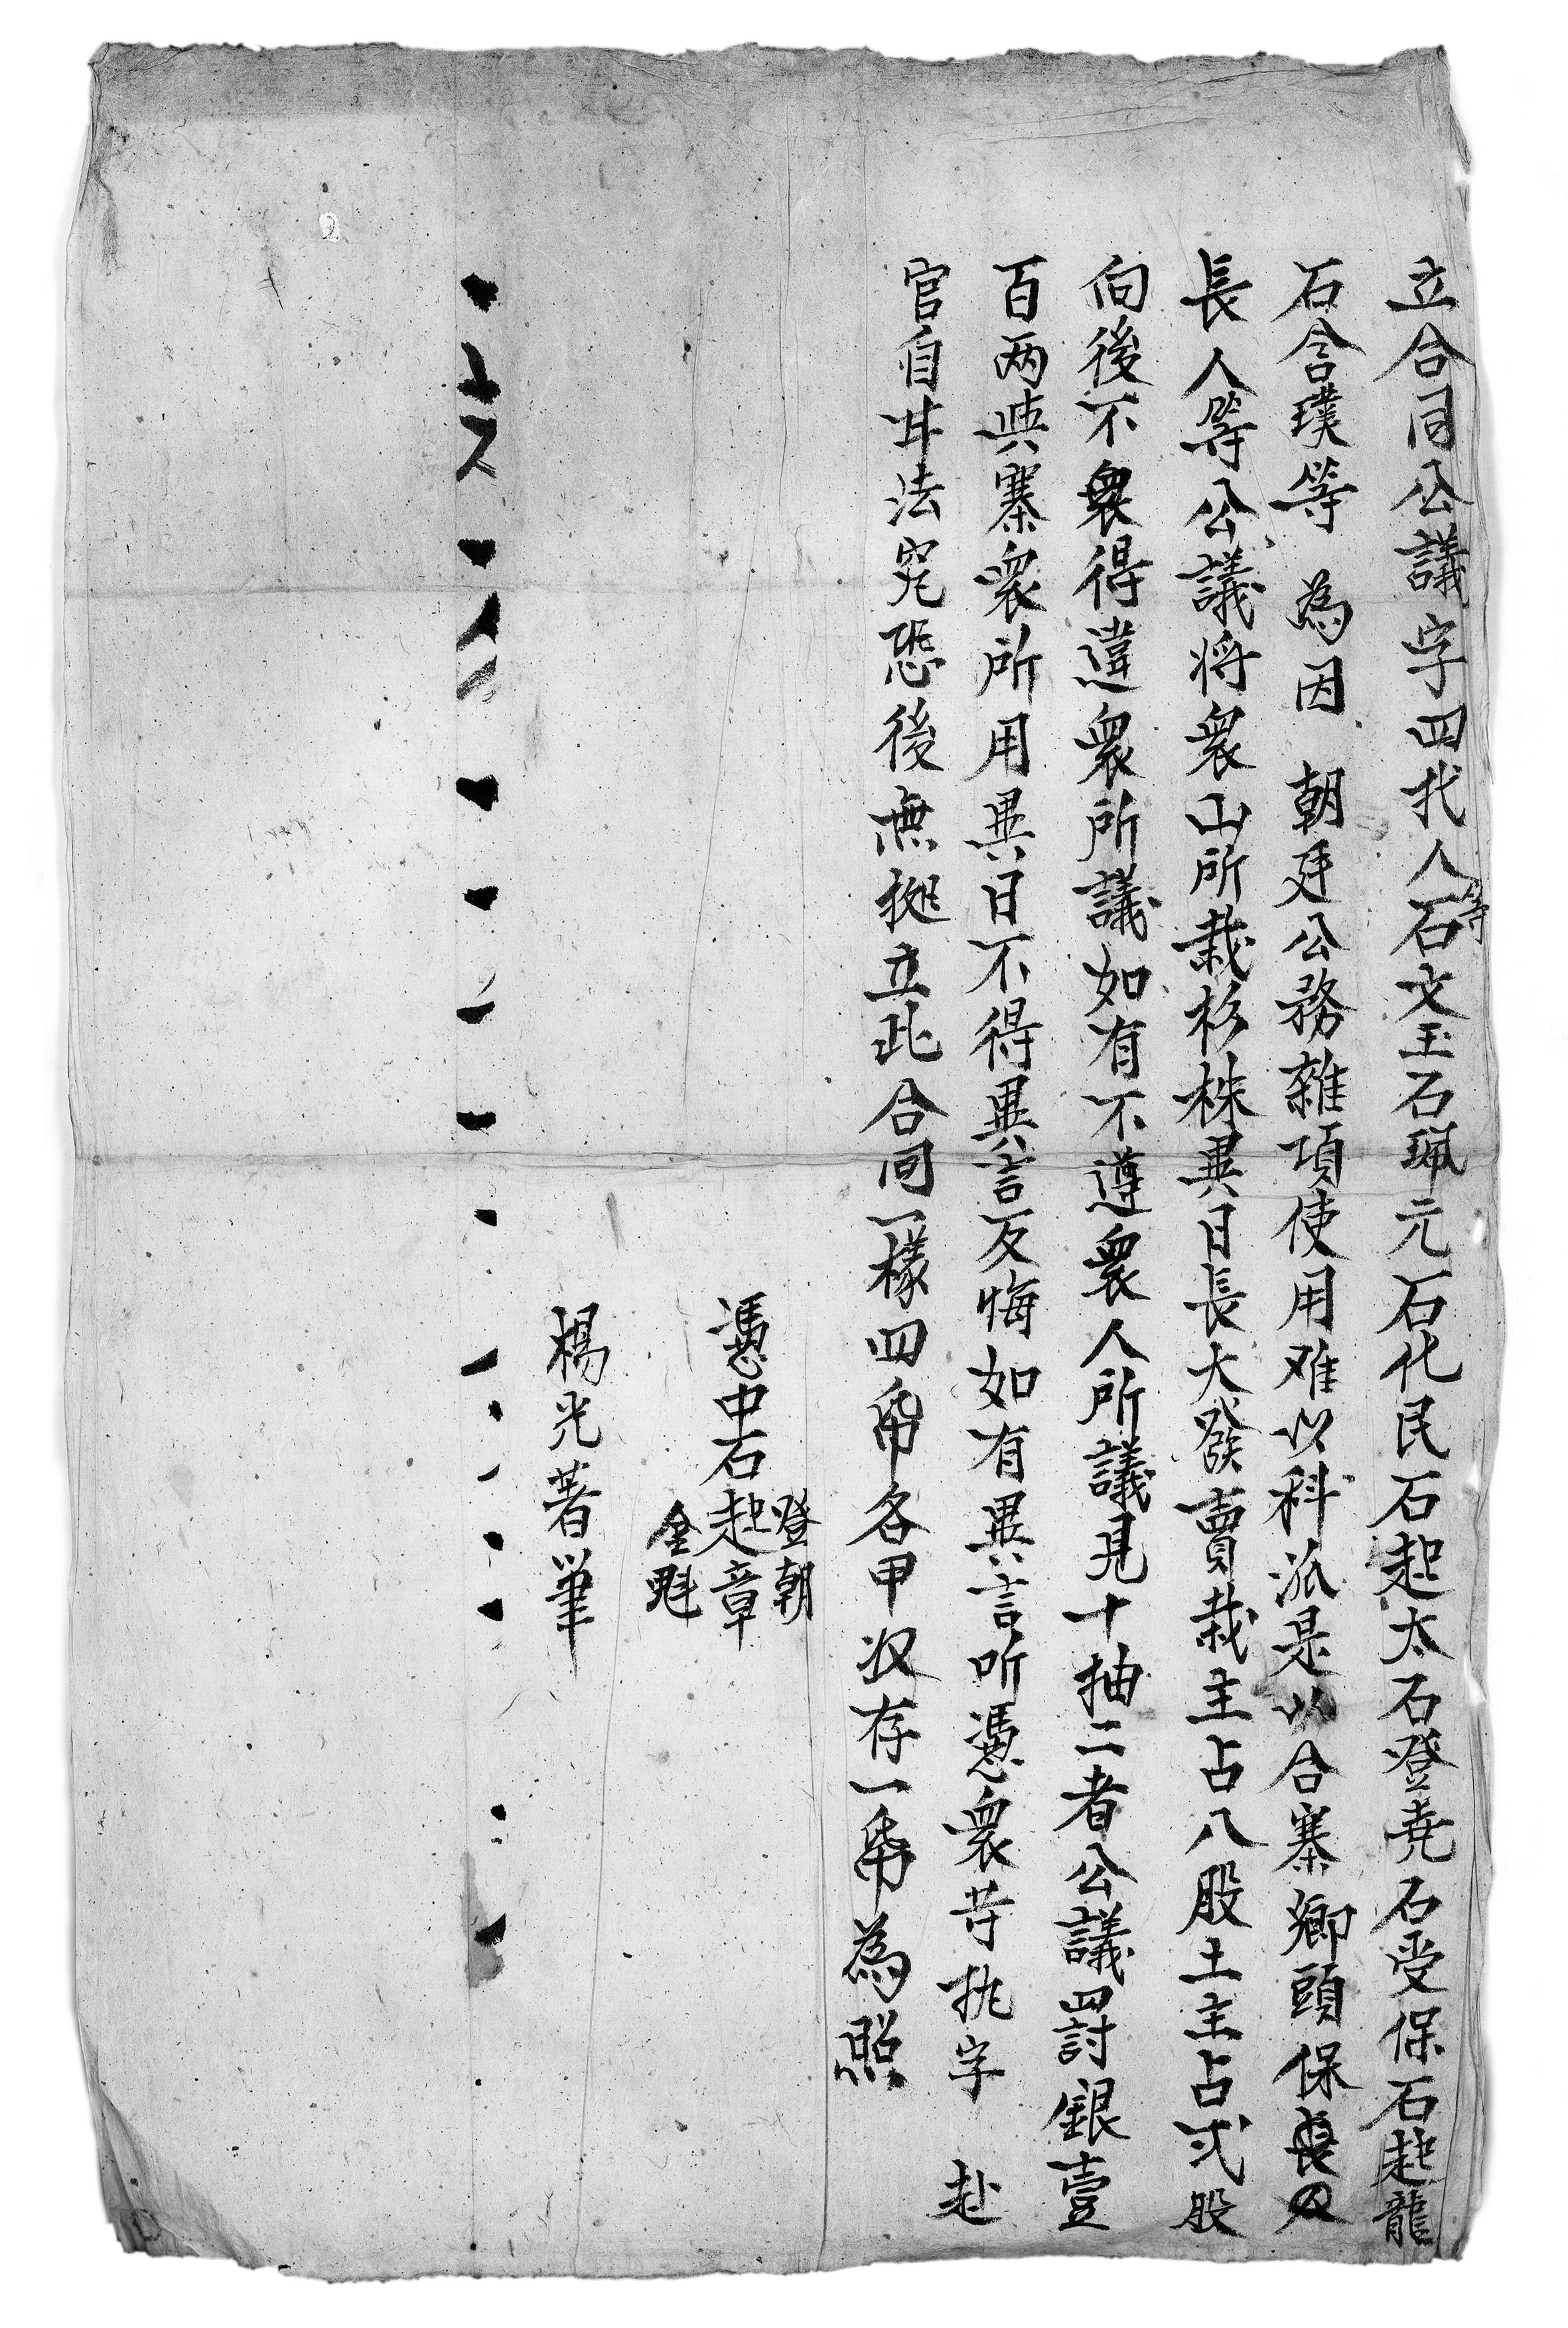 立合同公議字四找人等石文玉石珮元石化民石起太石登尭石受保石起龍
石含璞等 為因 朝廷公務雜項使用难以科派是以合寨鄉頭保長
長人等公議将衆山所栽杉株異日長大發賣栽主占八股土主占弍股
向後不衆得違衆所議如有不遵衆人所議見十抽二者公議罰銀壹
百两與寨衆所用異日不得異言反悔如有異言听憑衆等执字 赴
官自甘法究恐後無拠立此合同一樣四帋各甲収存一帋為照
登朝
憑中石起章
金魁
楊光著筆